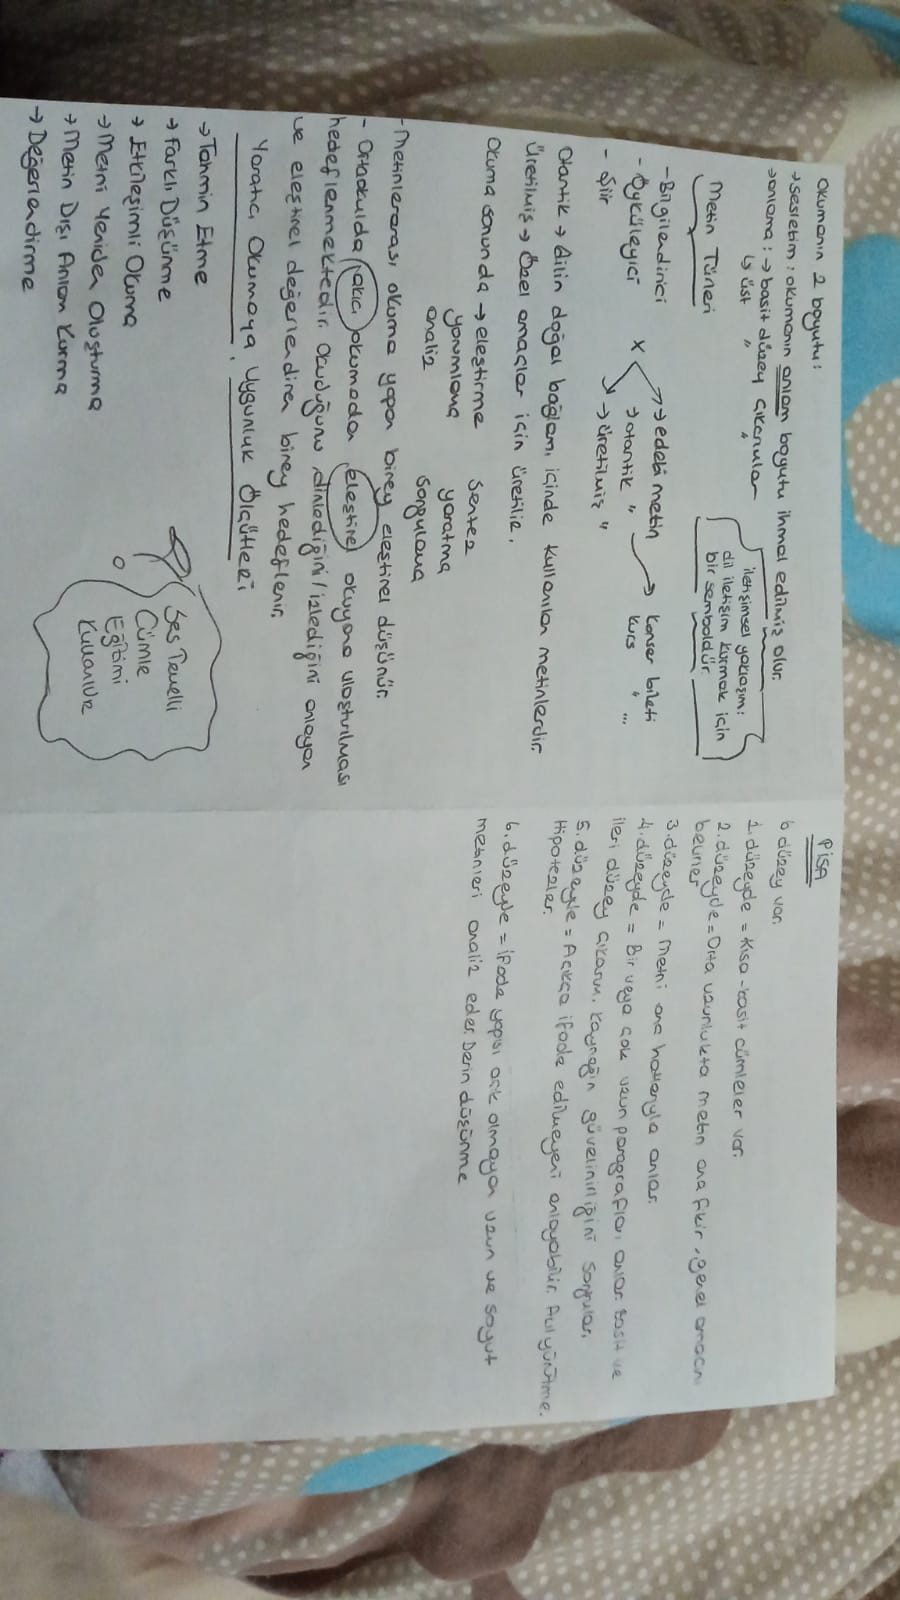 Okumanın 2 boyutu:
→ sesletim: okumanın anlam boyutu ihmal edilmiş olur.
→ anlama: → basit düzey çıkarımlar
↳ üst " "
iletişimsel yaklaşım:
dil iletişim kurmak için
bir semboldür.
Metin Türleri
- Bilgilendirici
- Öyküleyici
- Şiir
x → edebi metin
→ otantik "
→ üretilmiş "
→ konser bileti
kurs " ...
Otantik → dilin doğal bağlamı içinde kullanılan metinlerdir.
Üretilmiş → Özel amaçlar için üretilir.
Okuma sonunda → eleştirme sentez
yorumlama yaratma
analiz sorgulama
- Metinlerarası okuma yapan birey eleştirel düşünür.
- Ortaokulda akıcı okumadan eleştirel okuyana ulaştırılması
hedeflenmektedir. Okuduğunu, dinlediğini/izlediğini anlayan
ve eleştirel değerlendiren birey hedeflenir.
Yaratıcı Okumaya Uygunluk Ölçütleri
→ Tahmin Etme
→ Farklı Düşünme
→ Etkileşimli Okuma
→ Metni Yeniden Oluşturma
→ Metin Dışı Anlam Kurma
→ Değerlendirme
Ses Temelli
Cümle
Eğitimi
Kullanılır
PISA
6 düzey var.
1. düzeyde = Kısa-basit cümleler var.
2. düzeyde = Orta uzunlukta metin ana fikir, genel amacını
belirler
3. düzeyde = Metni ana hatlarıyla anlar.
4. düzeyde = Bir veya çok uzun paragrafları anlar. Basit ve
ileri düzey çıkarım. Kaynağın güvenirliğini sorgular.
5. düzeyle = Açıkça ifade edilmeyeni anlayabilir. Akıl yürütme.
Hipotezler.
6. düzeyle = İfade yapısı açık olmayan uzun ve soyut
metinleri analiz eder. Derin düşünme